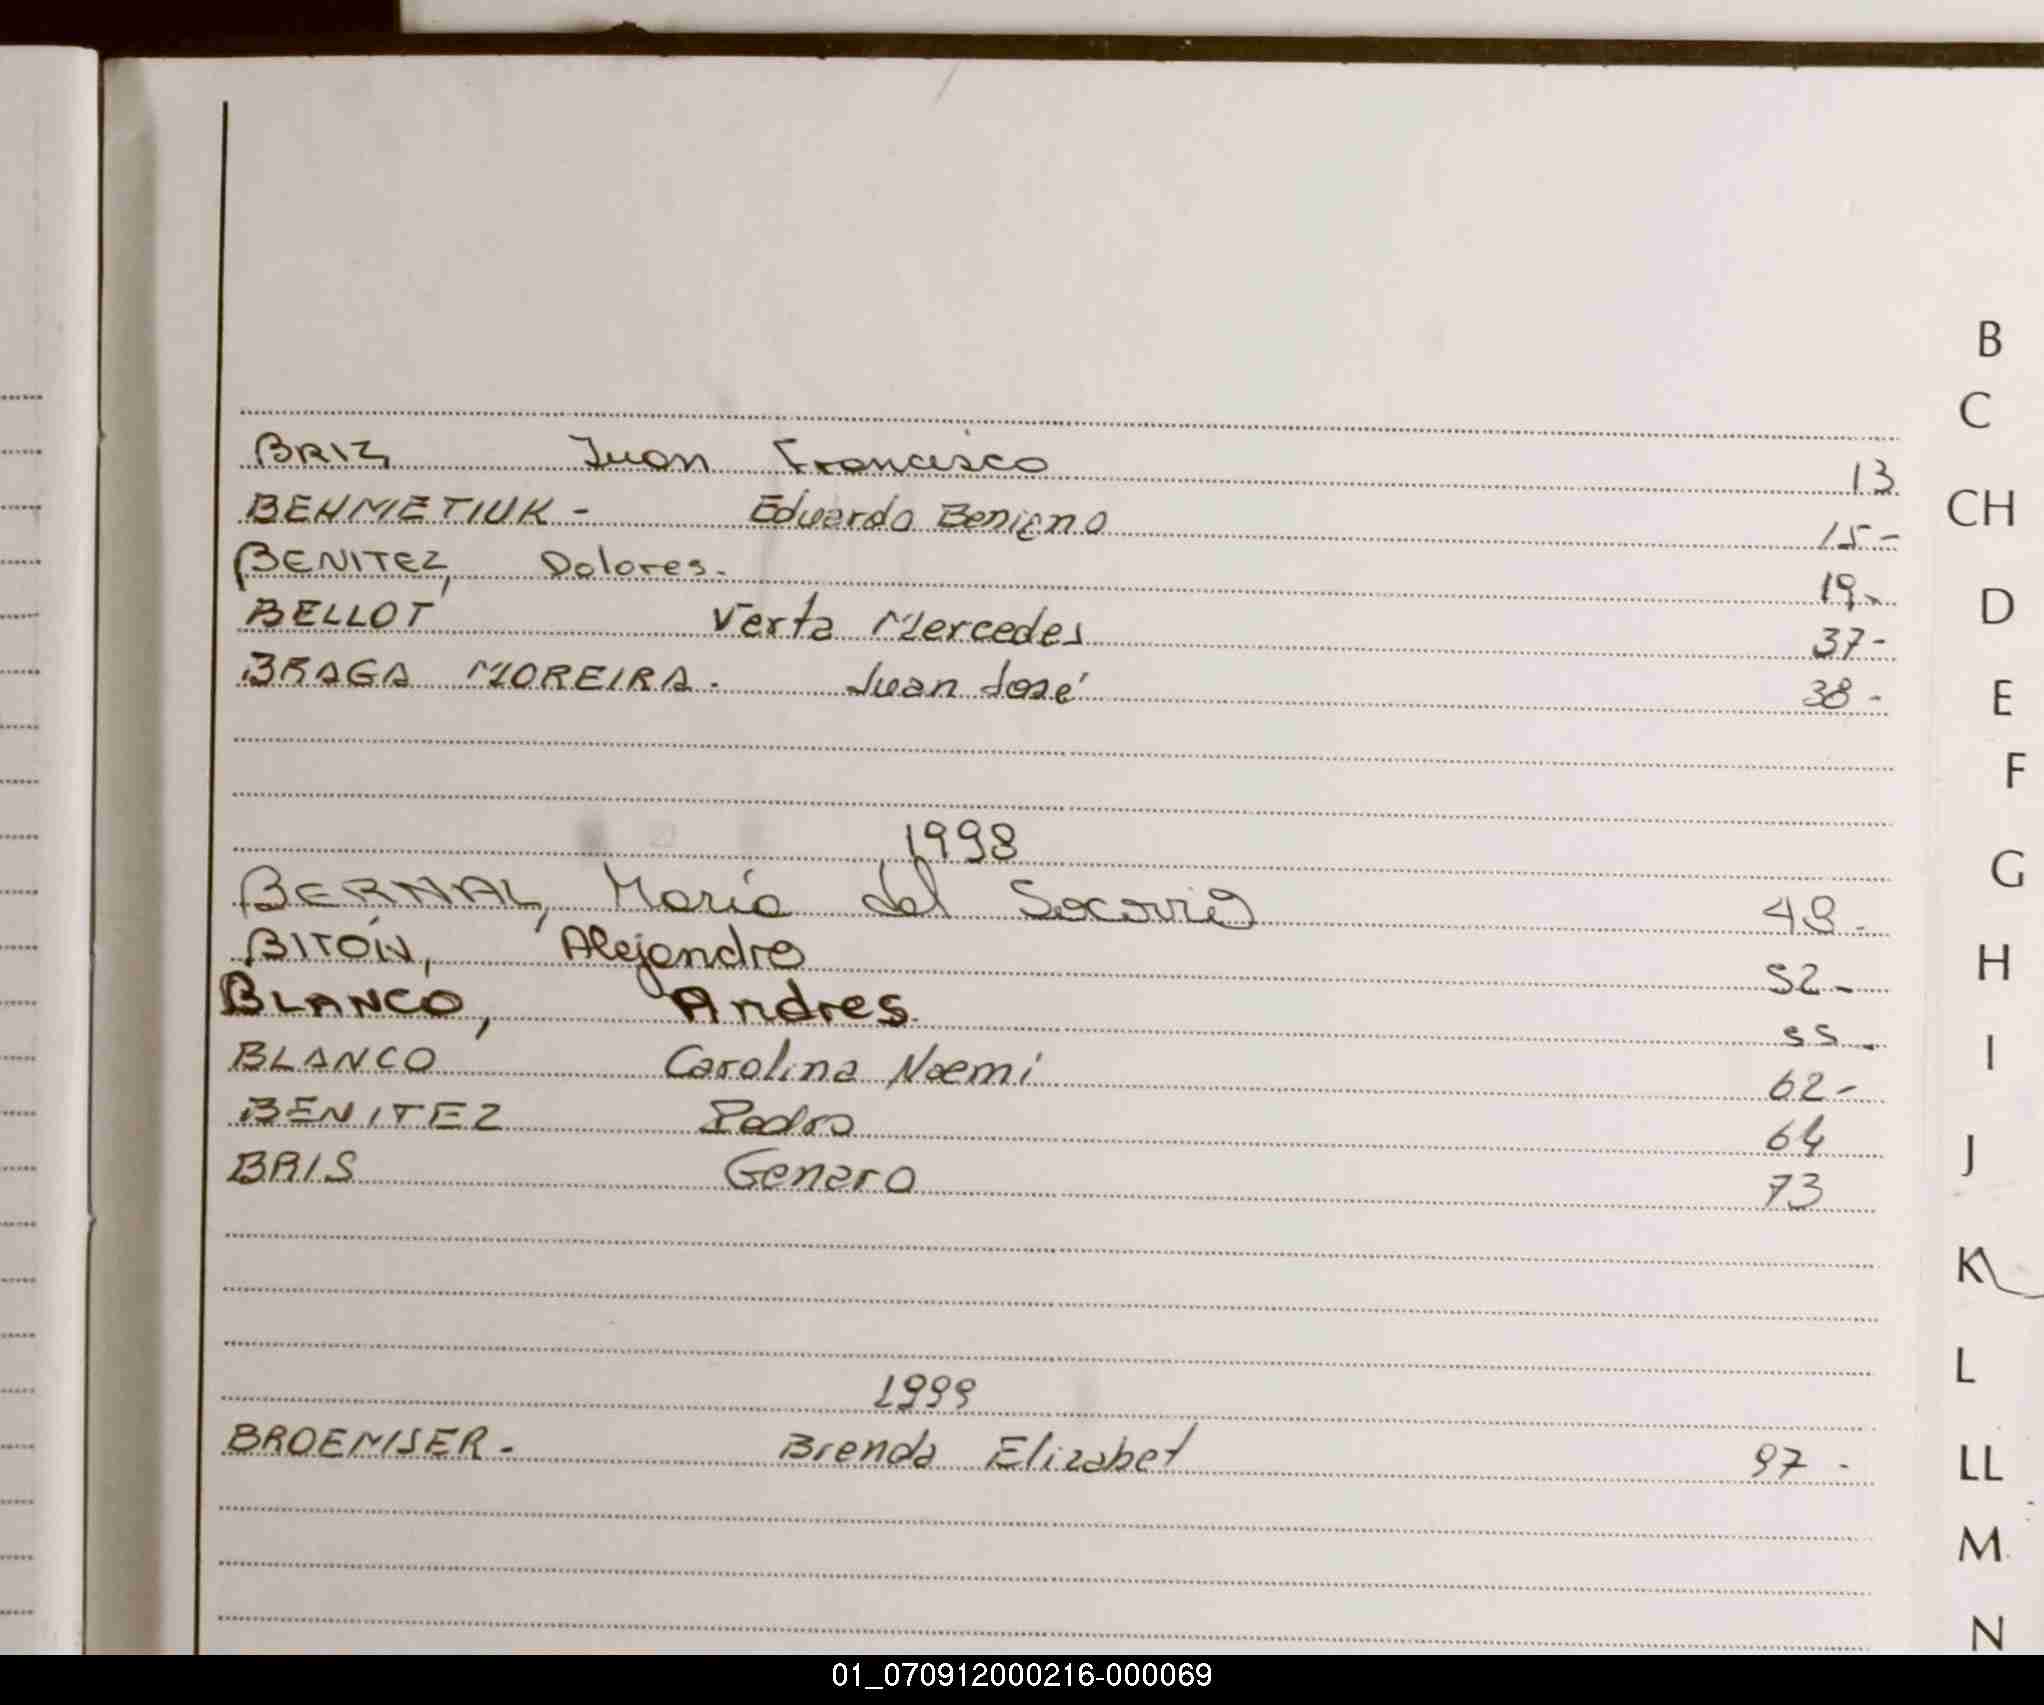 BRIZ, Juan Francisco 13
BEHMETIUK - Eduardo Benigno 15-
BENITEZ, Dolores. 19-
BELLOT Verta Mercedes 37-
BRAGA MOREIRA. Juan José 38-
1998
BERNAL, María del Socorro 49-
BITÓN, Alejandro 52-
BLANCO, Andres. 55-
BLANCO Carolina Noemi 62-
BENITEZ Pedro 64
BRIS Genaro 73
1999
BROEMSER. Brenda Elizabet 97-
B
C
CH
D
E
F
G
H
I
J
K
L
LL
M
N
01_070912000216-000069